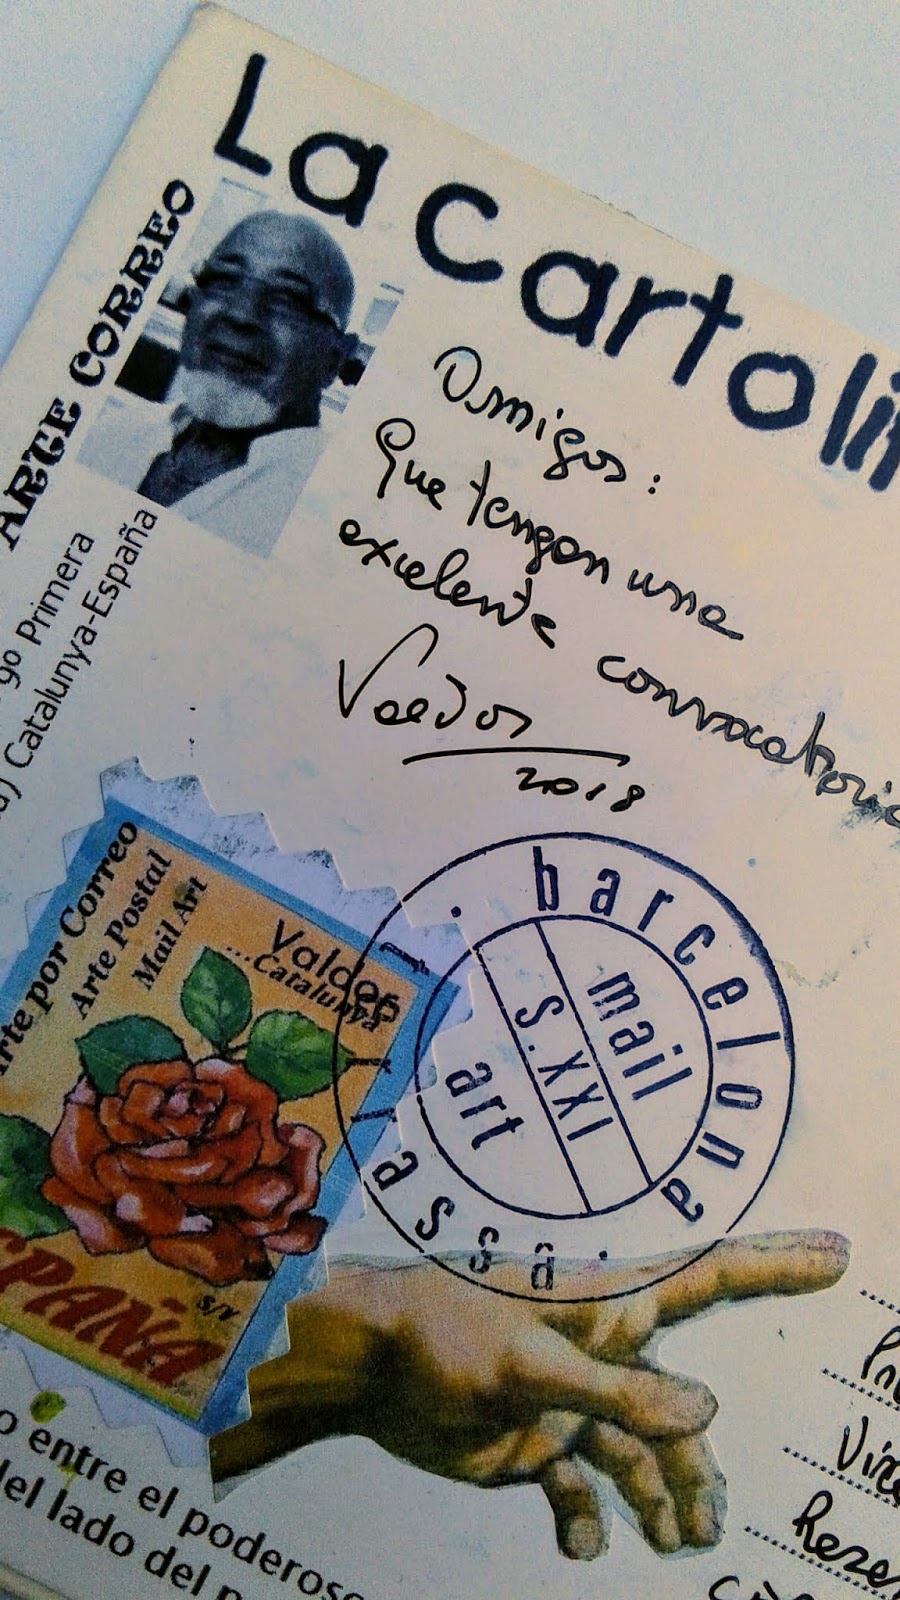 La cartoli
ARTE CORREO
9º Primera
) Catalunya-España
Amigos:
Que tengan una
excelente convocatoria
Valdor
2018
. barcelona .
mail
S.XXI
art
Arte por Correo
Arte Postal
Mail Art
Valdor
...Catalunya
S/V
ESPAÑA
o entre el poderoso
del lado del